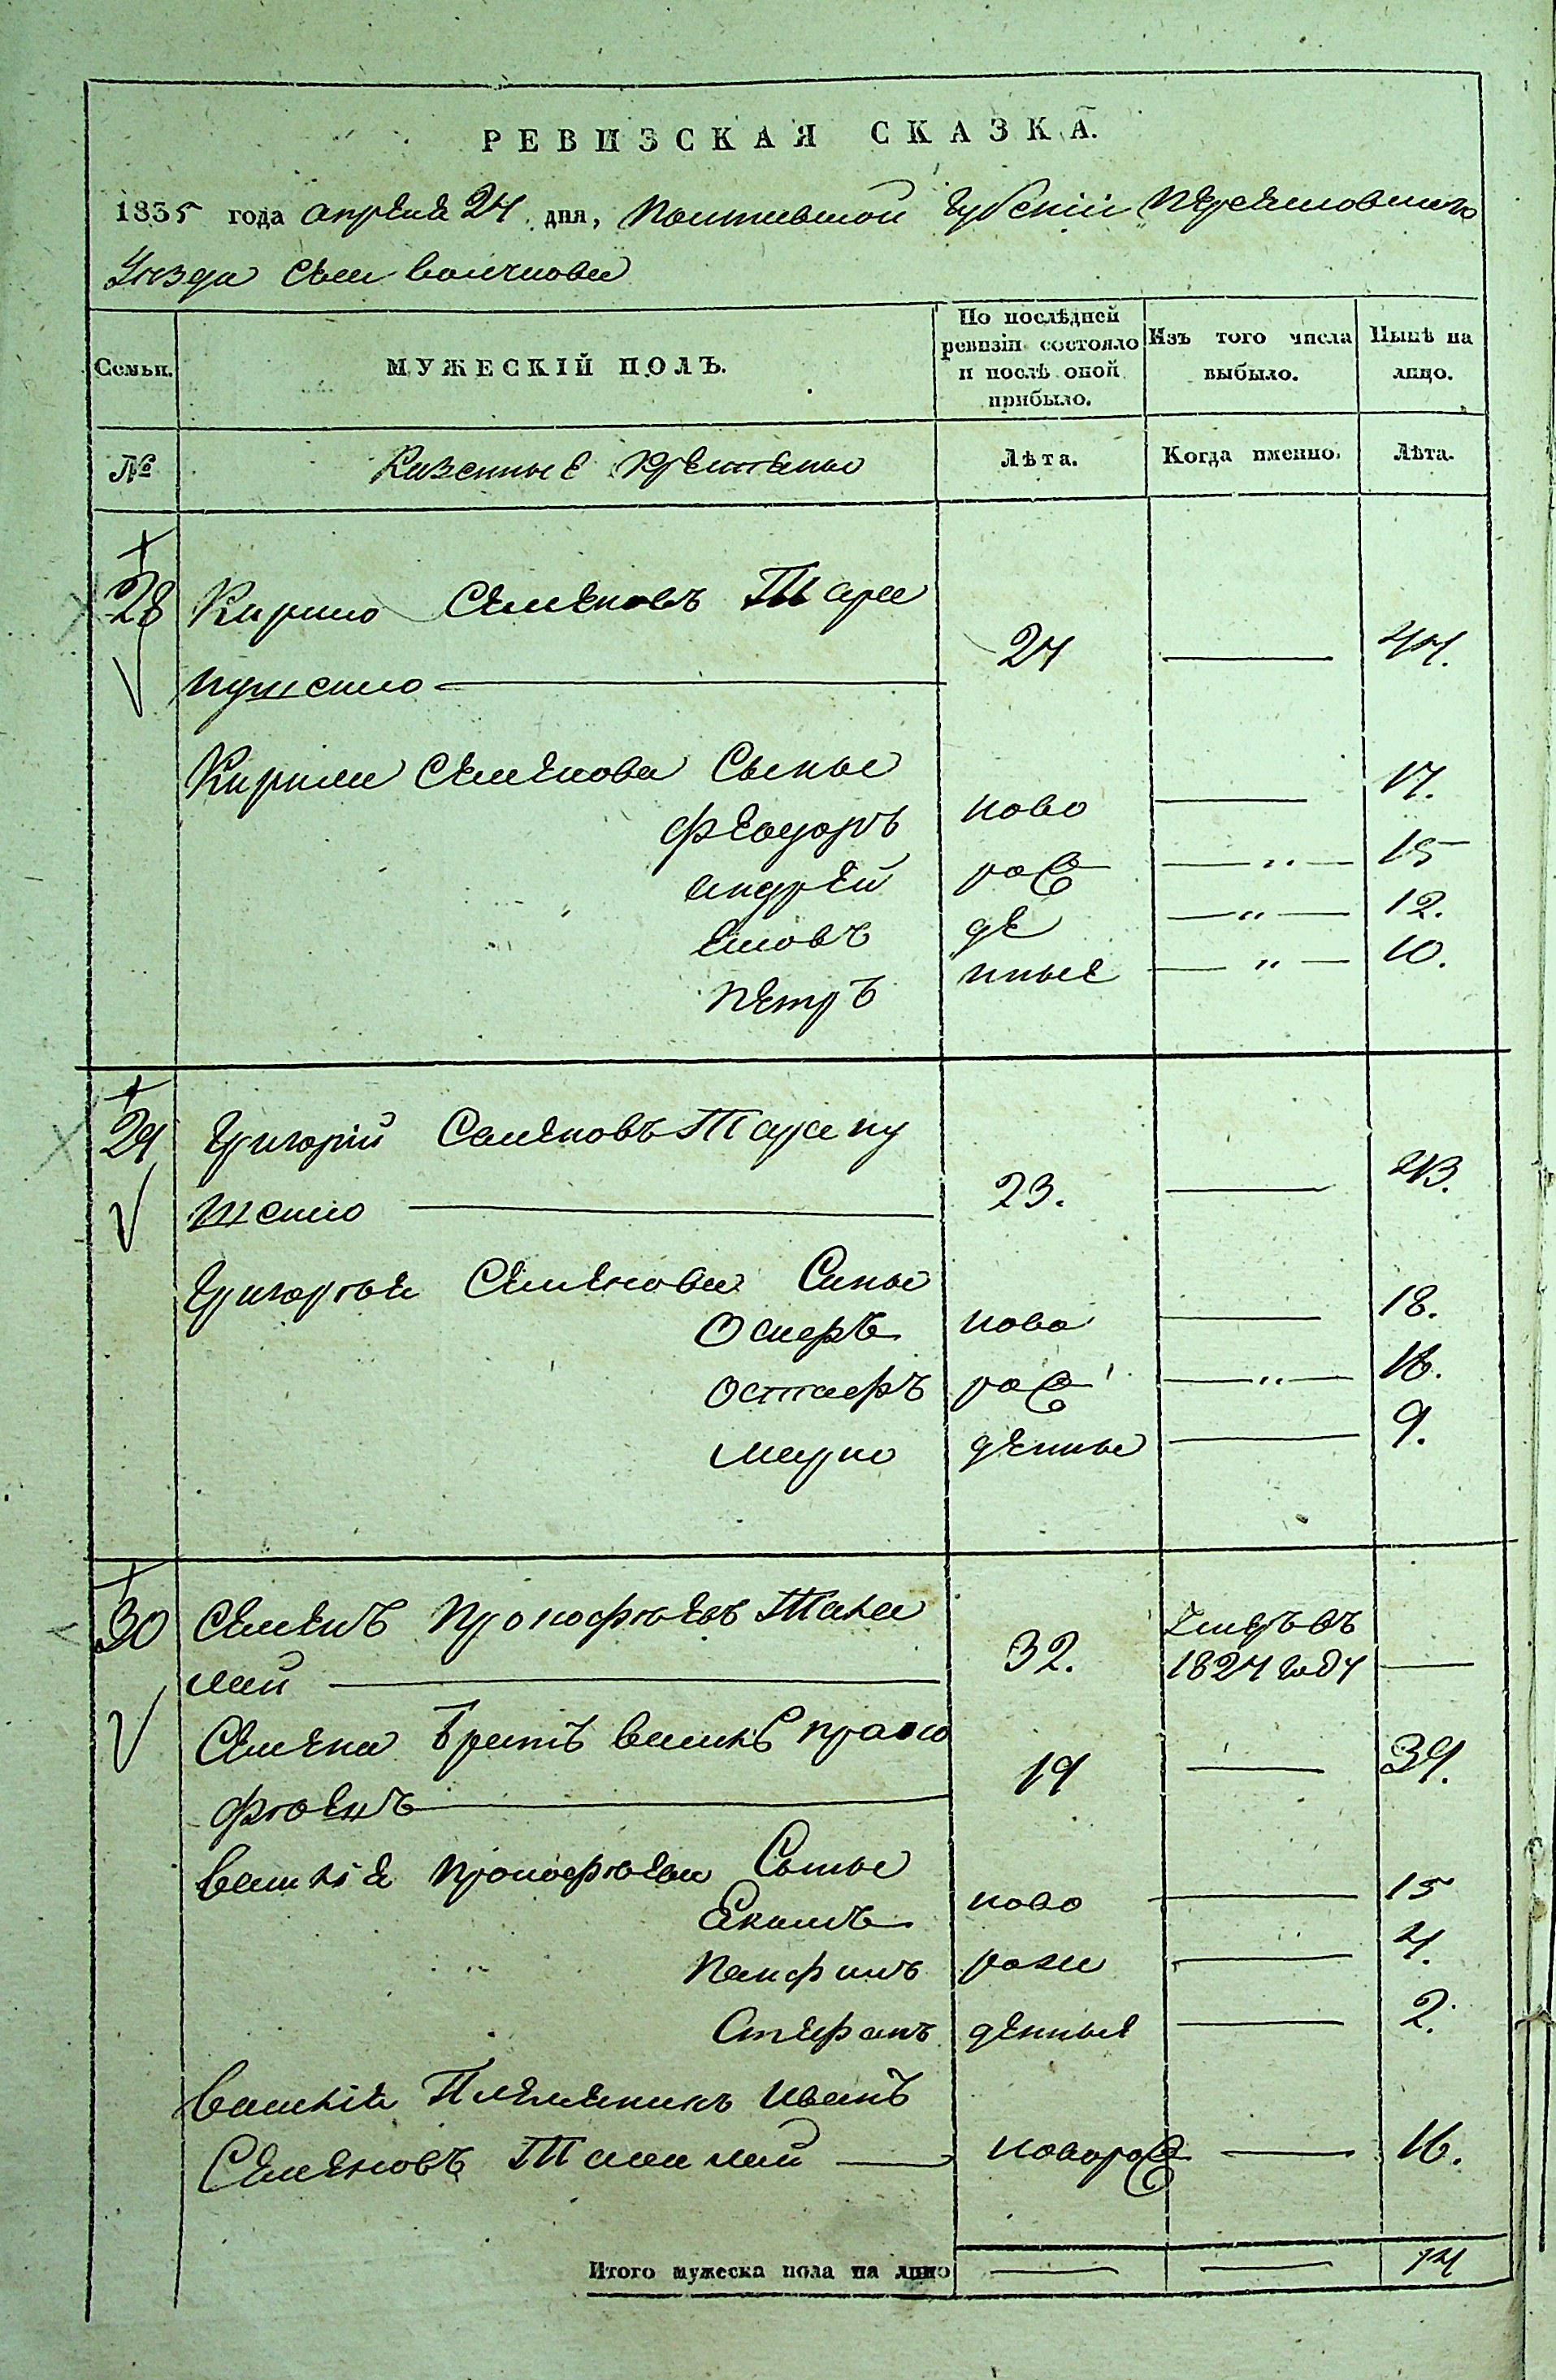 РЕВИЗСКАЯ СКАЗКА.
1835 года апреля 24 дня, Полтавской губерніи Переяславскаго
Уезда села Волчкова
Семьи. МУЖЕСКІЙ ПОЛЪ. По послѣдней ревизіи состояло и послѣ оной прибыло. Изъ того числа выбыло. Нынѣ на лицо.
№ Казенные крестяны Лѣта. Когда именно. Лѣта.
28 Кирило Семеновъ Тара
пушенко 24 — 44.
Кирила Семенова Сыны
Феодоръ ново — 17.
Андрей рож — „ — 15
Яковъ де — „ — 12.
Петръ нные — „ — 10.
29 Григорій Семеновъ Тарапу
шенко 23. — 43.
Григорья Семенова Сины
Осипъ ново — 18.
Остапъ рож — „ — 16.
Марко денны — 9.
30 Семенъ Прокофьевъ 32. Умеръ въ
1824 году —
Семена братъ Василь Проко
фьевъ 19 — 39.
Василія Прокофьева Сыны
Якимъ ново — 15
Панфилъ рож — 4.
Стефанъ денные — 2.
Василія Племеникъ Иванъ
Семеновъ новорож — 16.
Итого мужеска пола на лицо — — 14